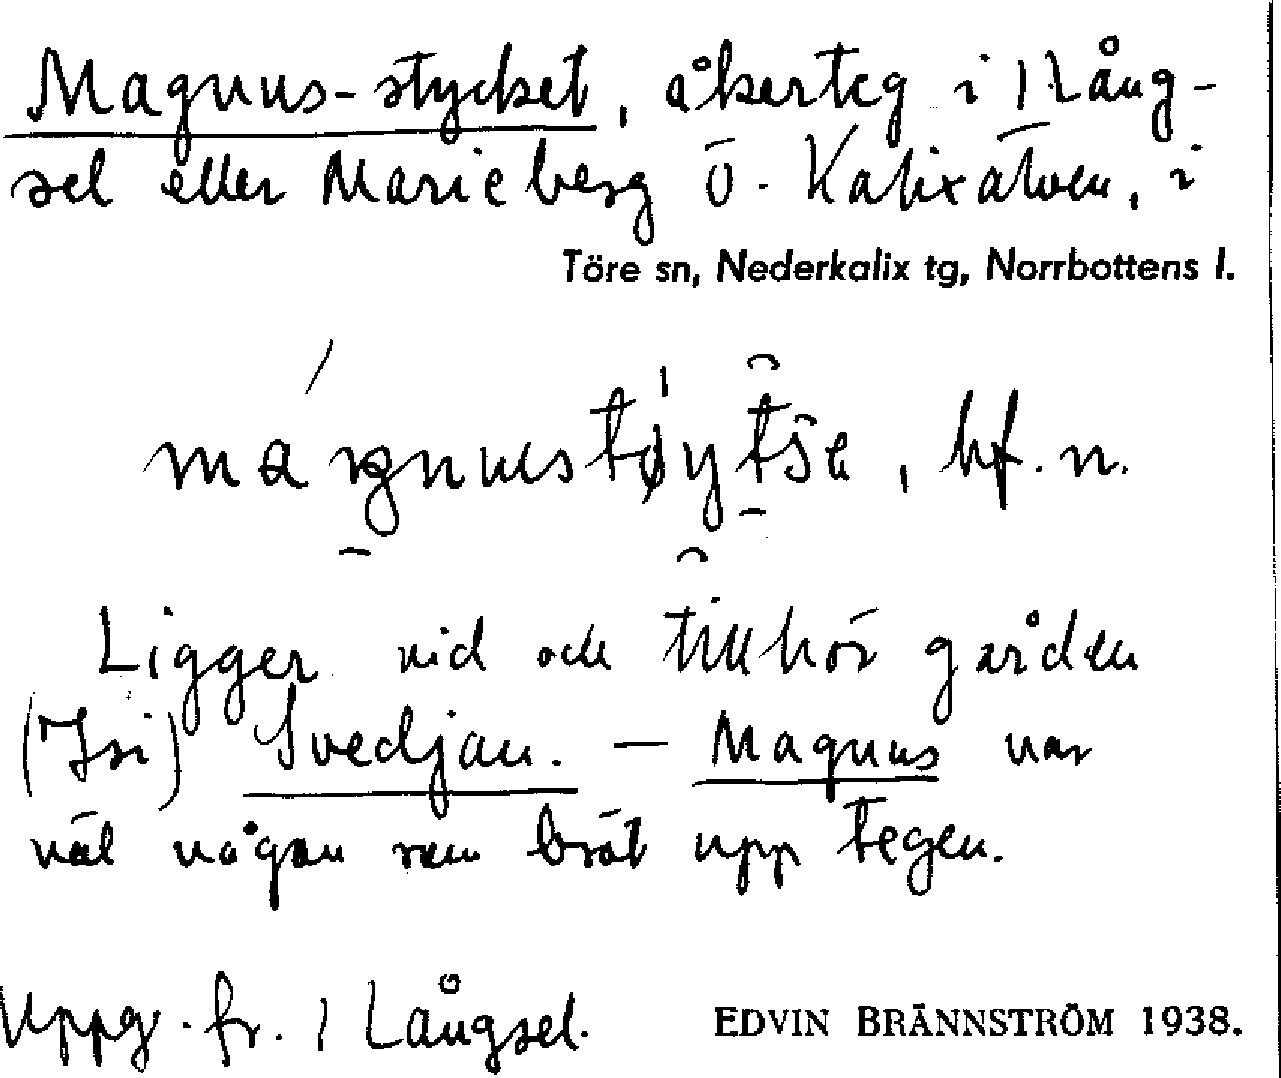 Magnus-stycket, åkerteg i 1 Lång-
sel eller Marieberg ö. Kalixälven, i
Töre sn, Nederkalix tg, Norrbottens l.
bf. n.
Ligger vid och tillhör gården
(Isi) Svedjan. — Magnus var
väl någon som bröt upp tegen.
Uppg. fr. 1 Långsel.
EDVIN BRÄNNSTRÖM 1938.